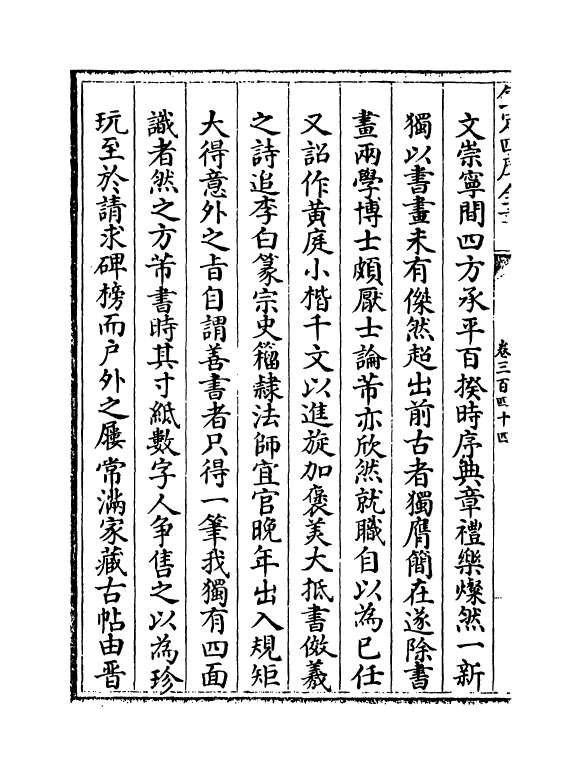 欽定四庫全書
卷三百四十四
文崇寧間四方承平百揆時序典章禮樂燦然一新
獨以書畫未有傑然超出前古者獨膺簡在遂除書
畫兩學博士頗厭士論芾亦欣然就職自以為己任
又詔作黃庭小楷千文以進旋加褒美大抵書傚羲
之詩追李白篆宗史籀隷法師宜官晚年出入規矩
大得意外之旨自謂善書者只得一筆我獨有四面
識者然之方芾書時其寸紙數字人爭售之以為珍
玩至於請求碑榜而户外之屨常滿家藏古帖由晉